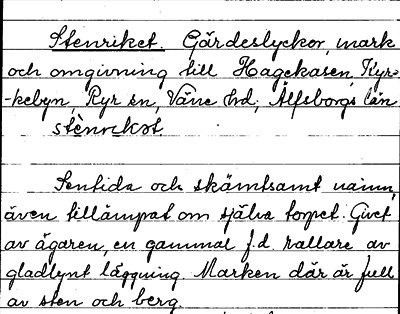 Stenriket. Gärdeslyckor, mark
och omgivning till Hagekasen, Kyr-
-kebyn, Ryr sn, Väne hd, Älfsborgs län
stènrikət.
Sentida och skämtsamt namn,
även tillämpat om själva torpet. Givet
av ägaren, en gammal f.d. rallare av
gladlynt läggning. Marken där är full
av sten och berg.